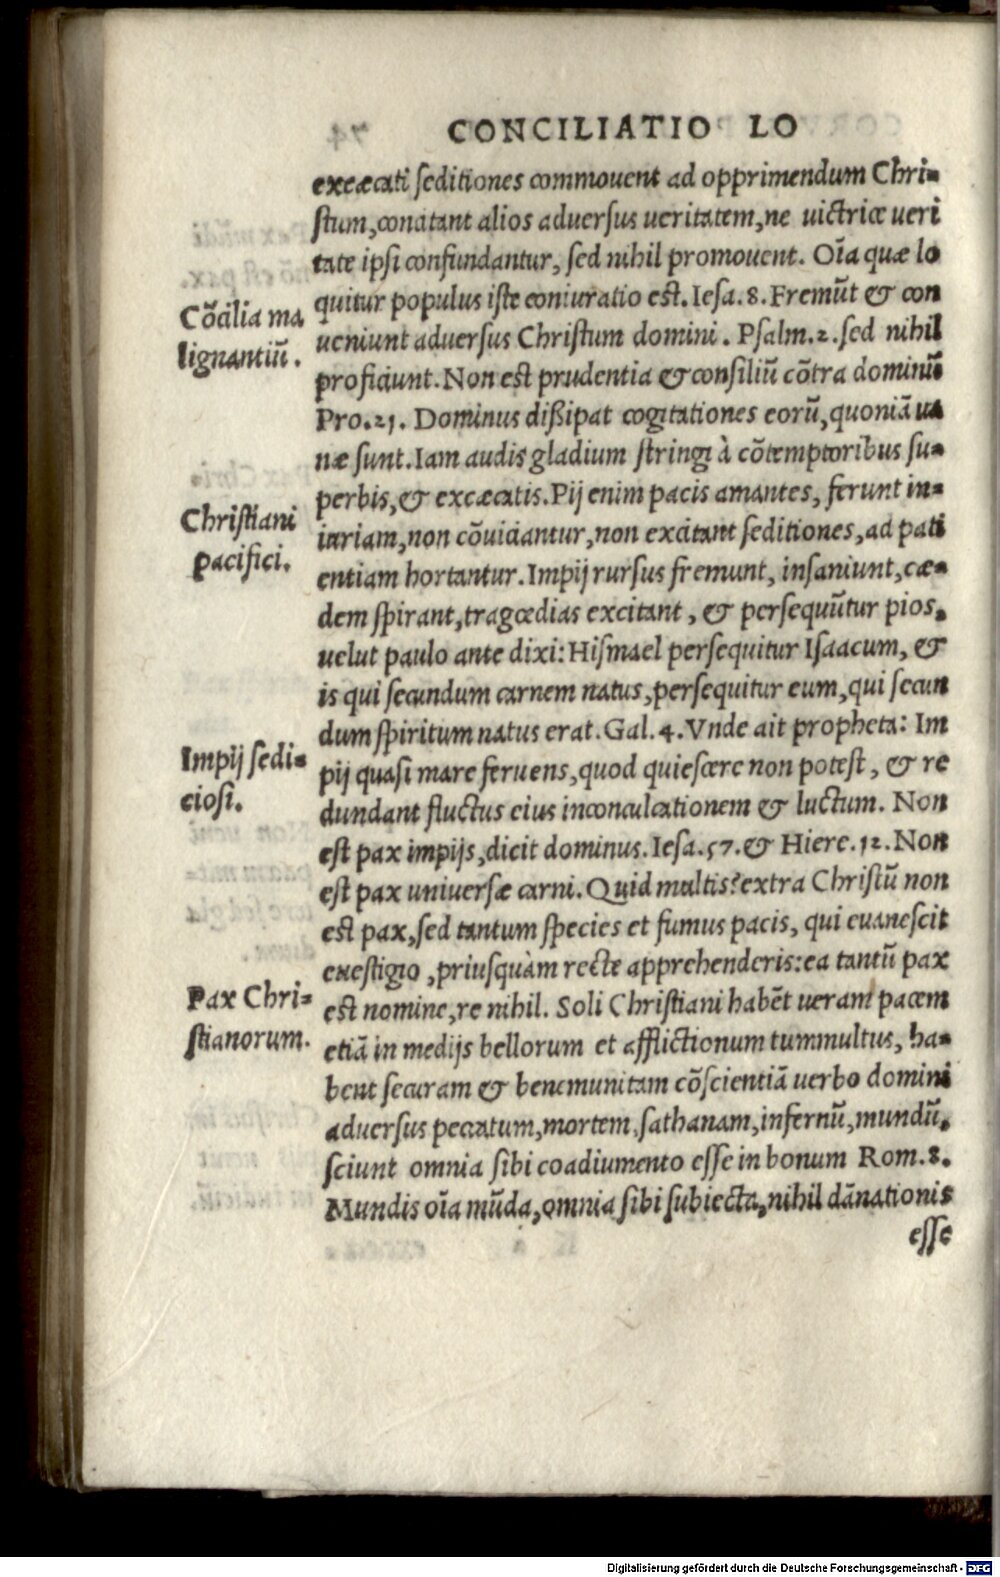 CONCILIATIO LO
excæcati seditiones commouent ad opprimendum Chri-
stum, concitant alios aduersus ueritatem, ne uictrice ueri
tate ipsi confundantur, sed nihil promouent. Oīa quæ lo
quitur populus iste coniuratio est. Iesa. 8. Fremūt & con
ueniunt aduersus Christum domini. Psalm. 2. sed nihil
proficiunt. Non est prudentia & consiliū cōtra dominū
Pro. 21. Dominus dißipat cogitationes eorū, quoniā ua
næ sunt. Iam audis gladium stringi à cōtemptoribus su-
perbis, & excæcatis. Pij enim pacis amantes, ferunt in-
iuriam, non cōuiciantur, non excitant seditiones, ad pati
entiam hortantur. Impij rursus fremunt, insaniunt, cæ-
dem spirant, tragœdias excitant, & persequūtur pios,
uelut paulo ante dixi: Hismael persequitur Isaacum, &
is qui secundum carnem natus, persequitur eum, qui secun
dum spiritum natus erat. Gal. 4. Vnde ait propheta: Im
pij quasi mare feruens, quod quiescere non potest, & re
dundant fluctus eius in conculcationem & luctum. Non
est pax impijs, dicit dominus. Iesa. 57. & Hiere. 12. Non
est pax uniuersæ carni. Quid multis? extra Christū non
est pax, sed tantum species et fumus pacis, qui euanescit
e uestigio, priusquàm recte apprehenderis: ea tantū pax
est nomine, re nihil. Soli Christiani habēt ueram pacem
etiā in medijs bellorum et afflictionum tummultus, ha-
bent securam & bene munitam cōscientiā uerbo domini
aduersus peccatum, mortem, sathanam, infernū, mundū,
sciunt omnia sibi coadiumento esse in bonum Rom. 8.
Mundis oīa mūda, omnia sibi subiecta, nihil dānationis
esse
Cōcilia ma
lignantiū.
Christiani
pacifici.
Impij sedi-
ciosi.
Pax Chri-
stianorum.
Digitalisierung gefördert durch die Deutsche Forschungsgemeinschaft - DFG